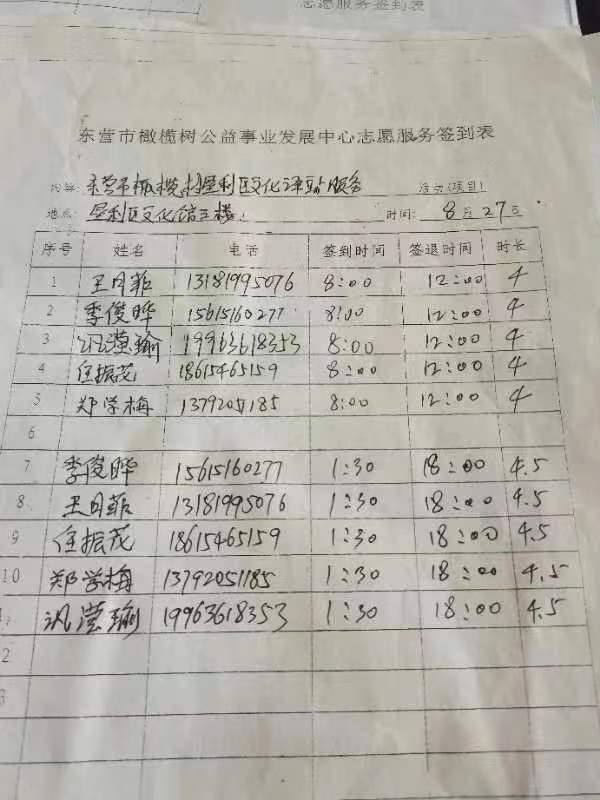 志愿服务签到表
东营市橄榄树公益事业发展中心志愿服务签到表
内容：东营市橄榄树垦利区文化驿站服务 活动(项目)
地点：垦利区文化馆三楼 时间：8月27日
序号 姓名 电话 签到时间 签退时间 时长
1 王月菲 13181995076 8:00 12:00 4
2 季俊晔 15615160277 8:00 12:00 4
3 滢瑜 19963618353 8:00 12:00 4
4 任振茂 18615465159 8:00 12:00 4
5 郑学梅 13792051185 8:00 12:00 4
6
7 季俊晔 15615160277 1:30 18:00 4.5
8 王月菲 13181995076 1:30 18:00 4.5
9 任振茂 18615465159 1:30 18:00 4.5
10 郑学梅 13792051185 1:30 18:00 4.5
滢瑜 19963618353 1:30 18:00 4.5
2
3